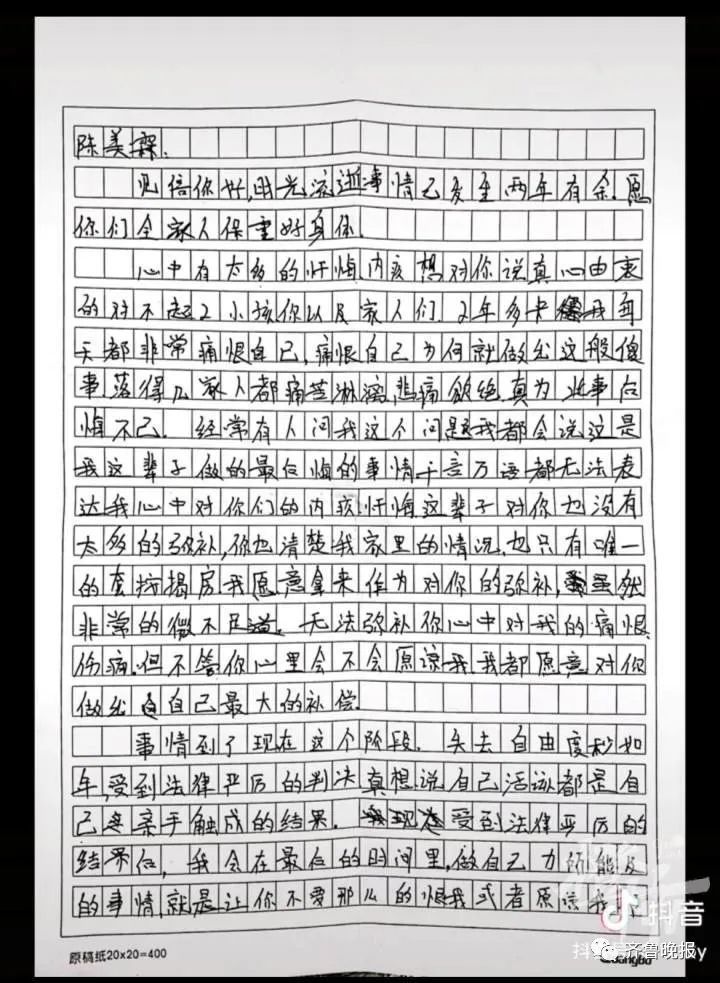 陈美霖:
见信你好,时光流逝事情已发生两年有余.愿
你们全家人保重好身体.
心中有太多的忏悔.内疚想对你说真心由衷
的对不起2小孩你以及家人们.2年多来我每
天都非常痛恨自己,痛恨自己为何就做出这般傻
事落得几家人都痛苦淋漓,悲痛欲绝真为此事后
悔不已.经常有人问我这个问题我都会说这是
我这辈子做的最后悔的事情千言万语都无法表
达我心中对你们的内疚忏悔这辈子对你也没有
太多的弥补,你也清楚我家里的情况.也只有唯一
的套按揭房.我愿意拿来作为对你的弥补,虽然
非常的微不足道.无法弥补你心中对我的痛恨.
伤痛.但不管你心里会不会原谅我.我都愿意对你
做出自己最大的补偿
事情到了现在这个阶段.失去自由度秒如
年,受到法律严厉的判决真想说自己活该都是自
己亲手触成的结果.现在受到法律严厉的
结果后,我会在最后的时间里,做自己力所能及
的事情,就是让你不要那么的恨我或者原谅我
原稿纸20×20=400
抖音
齐鲁晚报